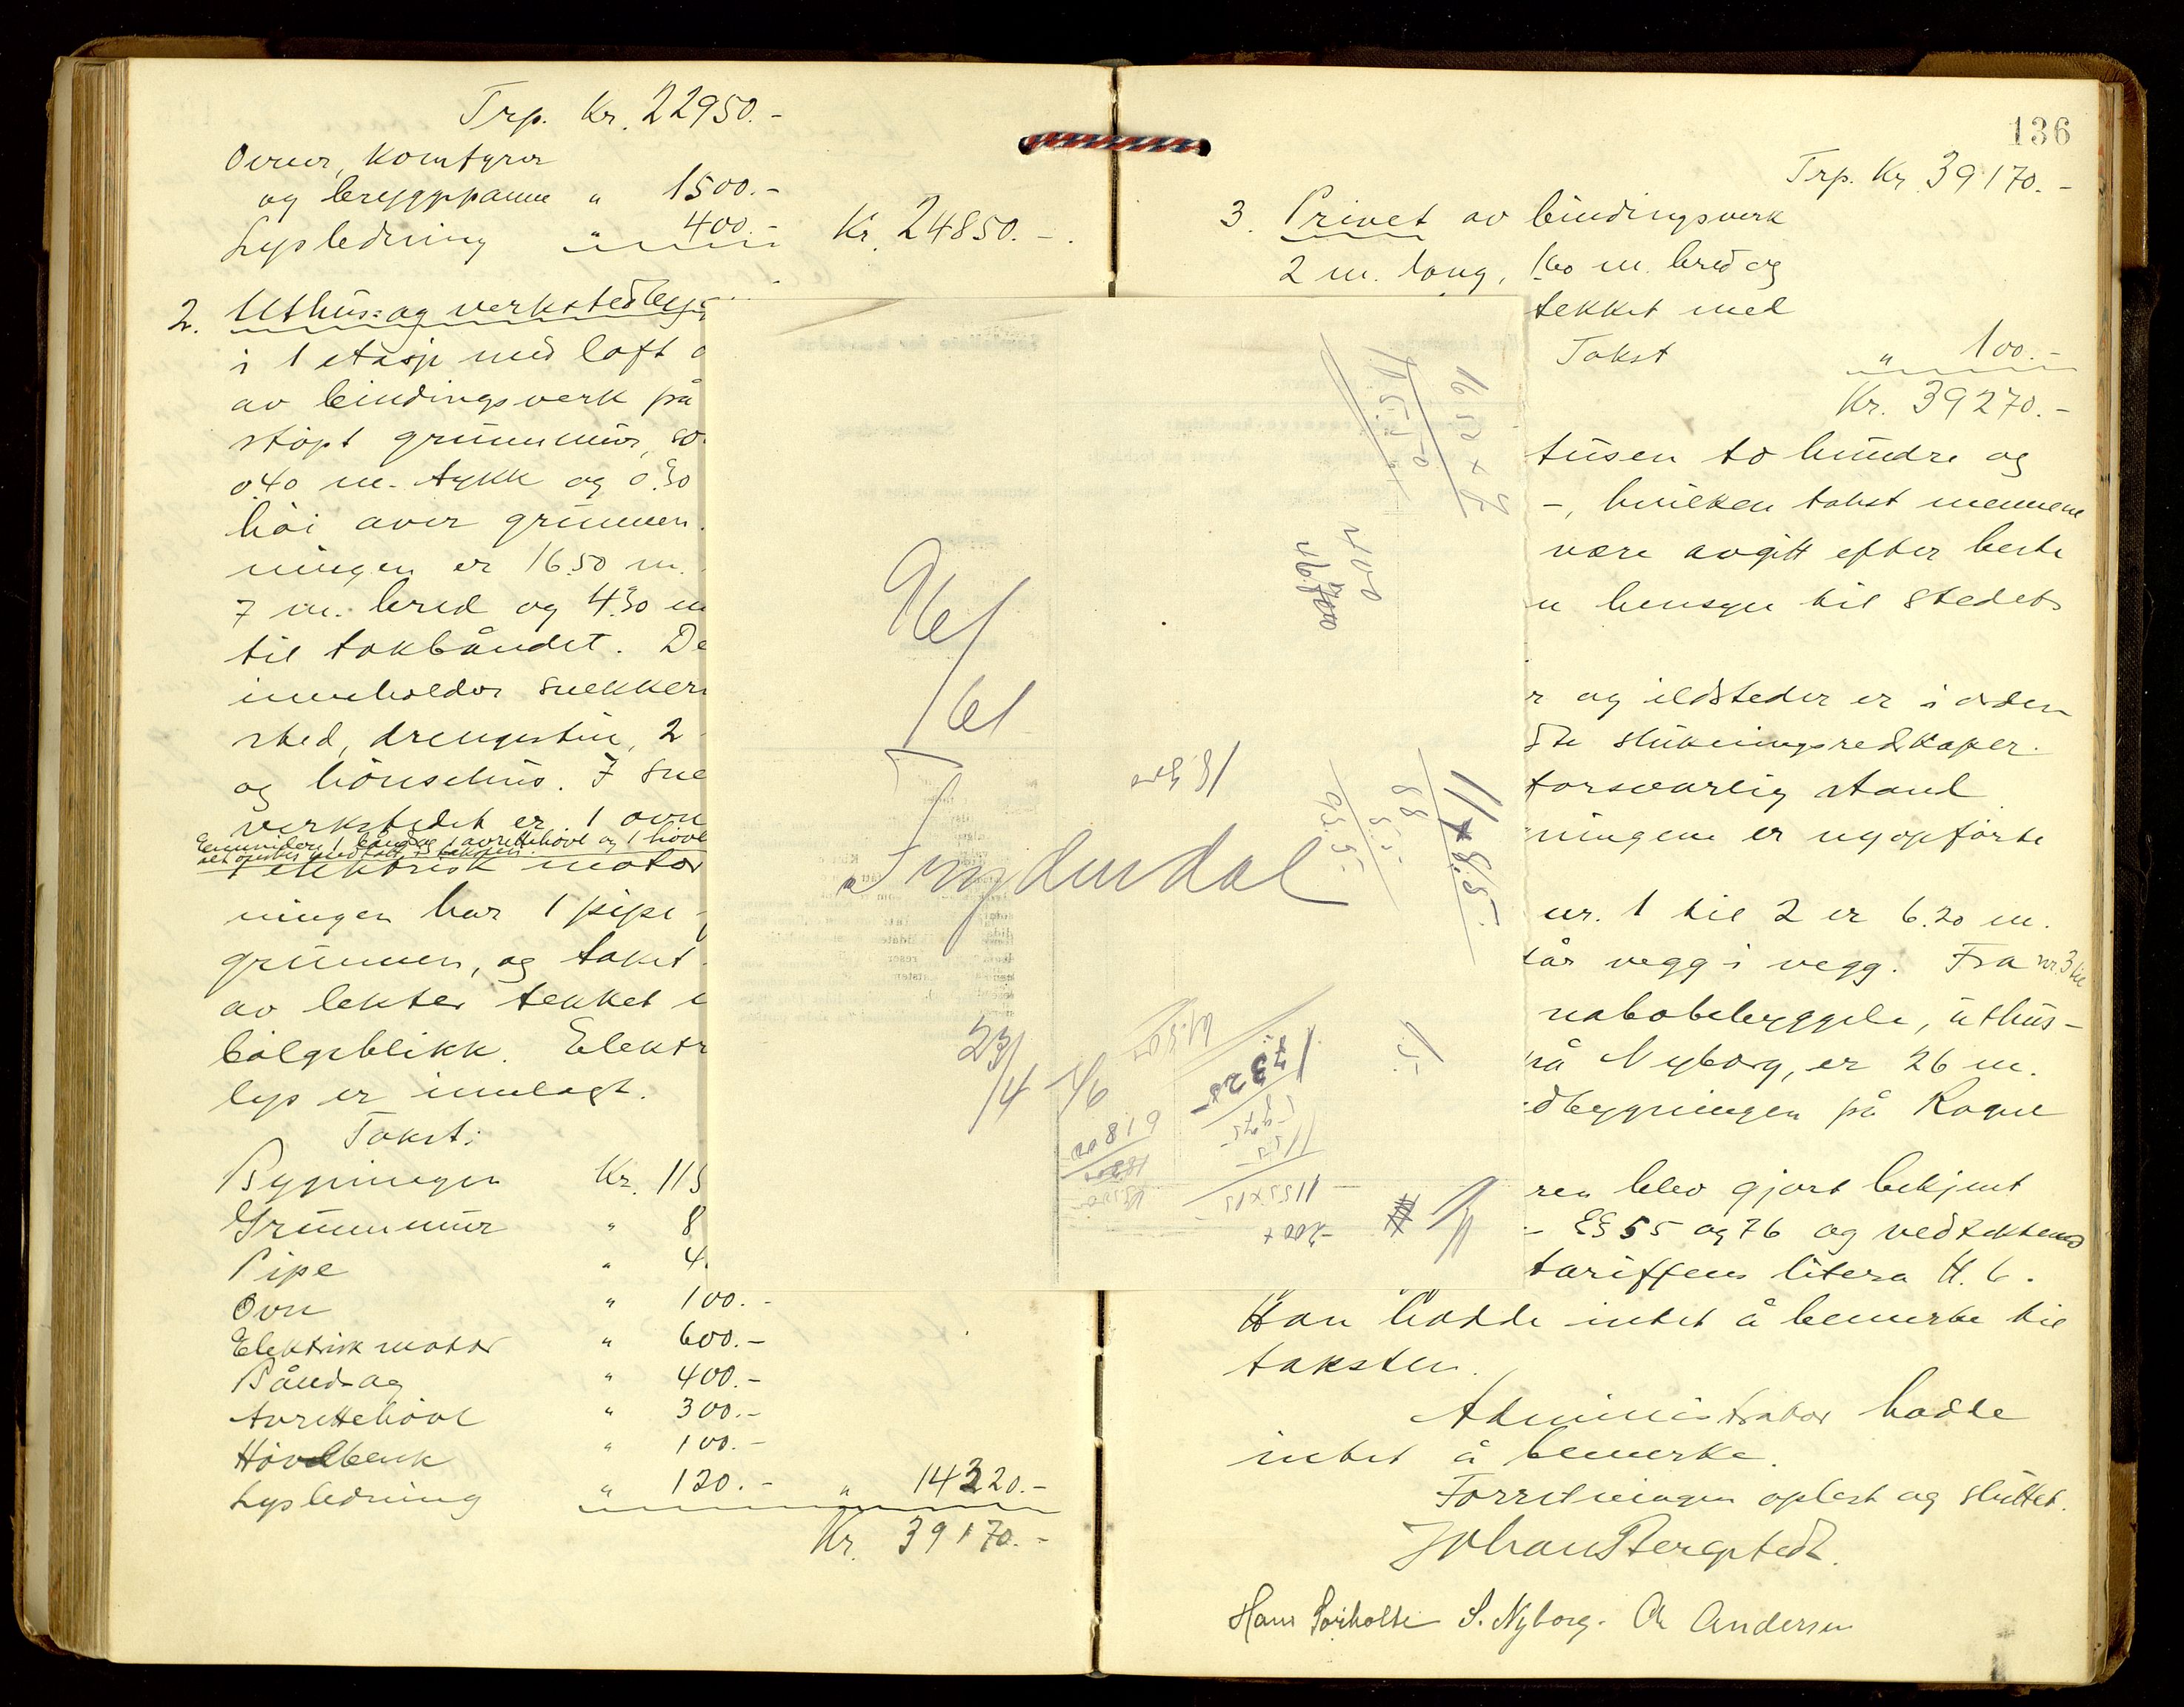 Trp. Kr. 22950.-
Ovner, Komfyrer
og bryggpanne " 1500.-
Lysledning " 400.- Kr. 24850.-
2. Uthus- og verkstedbyg
i 1 etasje med loft o
av bindingsverk på
støpt grunnmur, so
0.40 m. tykk og 0.30
høi over grunnen.
ningen er 16.50 m.
7 m. bred og 4.30 m
til takbåndet. De
inneholder snekker
sted, drengestue, 2
og hønsehus. I sne
verkstedet er 1 ovn
Ennvidere 1 båndsag 1 avrettehøvl og 1 høvl
1 elektrisk motor
ningen har 1 pipe
grunnen, og taket
av lekter tekket
bølgeblikk. Elektr
lys er innlagt.
Takst:
Bygningen Kr. 115
Grunnmur " 8
Pipe " 4
Ovn " 100.-
Elektrisk motor " 600.-
Båndsag " 400.-
Avrettehøvl " 300.-
Høvelbenk " 100.-
Lysledning " 120.- " 14320.-
Kr. 39170.-
96/61
Frydendal
23/4 46
18.500
16 50 x 7
1155 0
400
16.700
11 x 8.5
88
5.5
93.5
15
61500
17325
1155x15
61800
200 x
136
Trp. Kr. 39170.-
3. Privet av bindingsverk
2 m. lang, 1.60 m. bred og
tekket med
Takst " 100.-
Kr. 39270.-
tusen to hundre og
-, hvilken takst mennene
være avgitt efter beste
n hensyn til stedets
r og ildsteder er i orden
ste slukningsredskaper.
forsvarlig stand
ningene er nyopførte
nr. 1 til 2 er 6.20 m.
tår vegg i vegg. Fra nr. 3 til
nabobebyggele, uthus-
på Nyborg, er 26 m.
dbygningen på Rogne
ren blev gjort bekjent
- §§ 55 og 76 og vedtektens
tariffens litera H. 6.
Han hadde intet å bemerke til
taksten.
Administrator hadde
intet å bemerke.
Forretningen oplest og sluttet.
Johan Bergstedt.
Hans Sørholte S. Nyborg. Ch Andersen